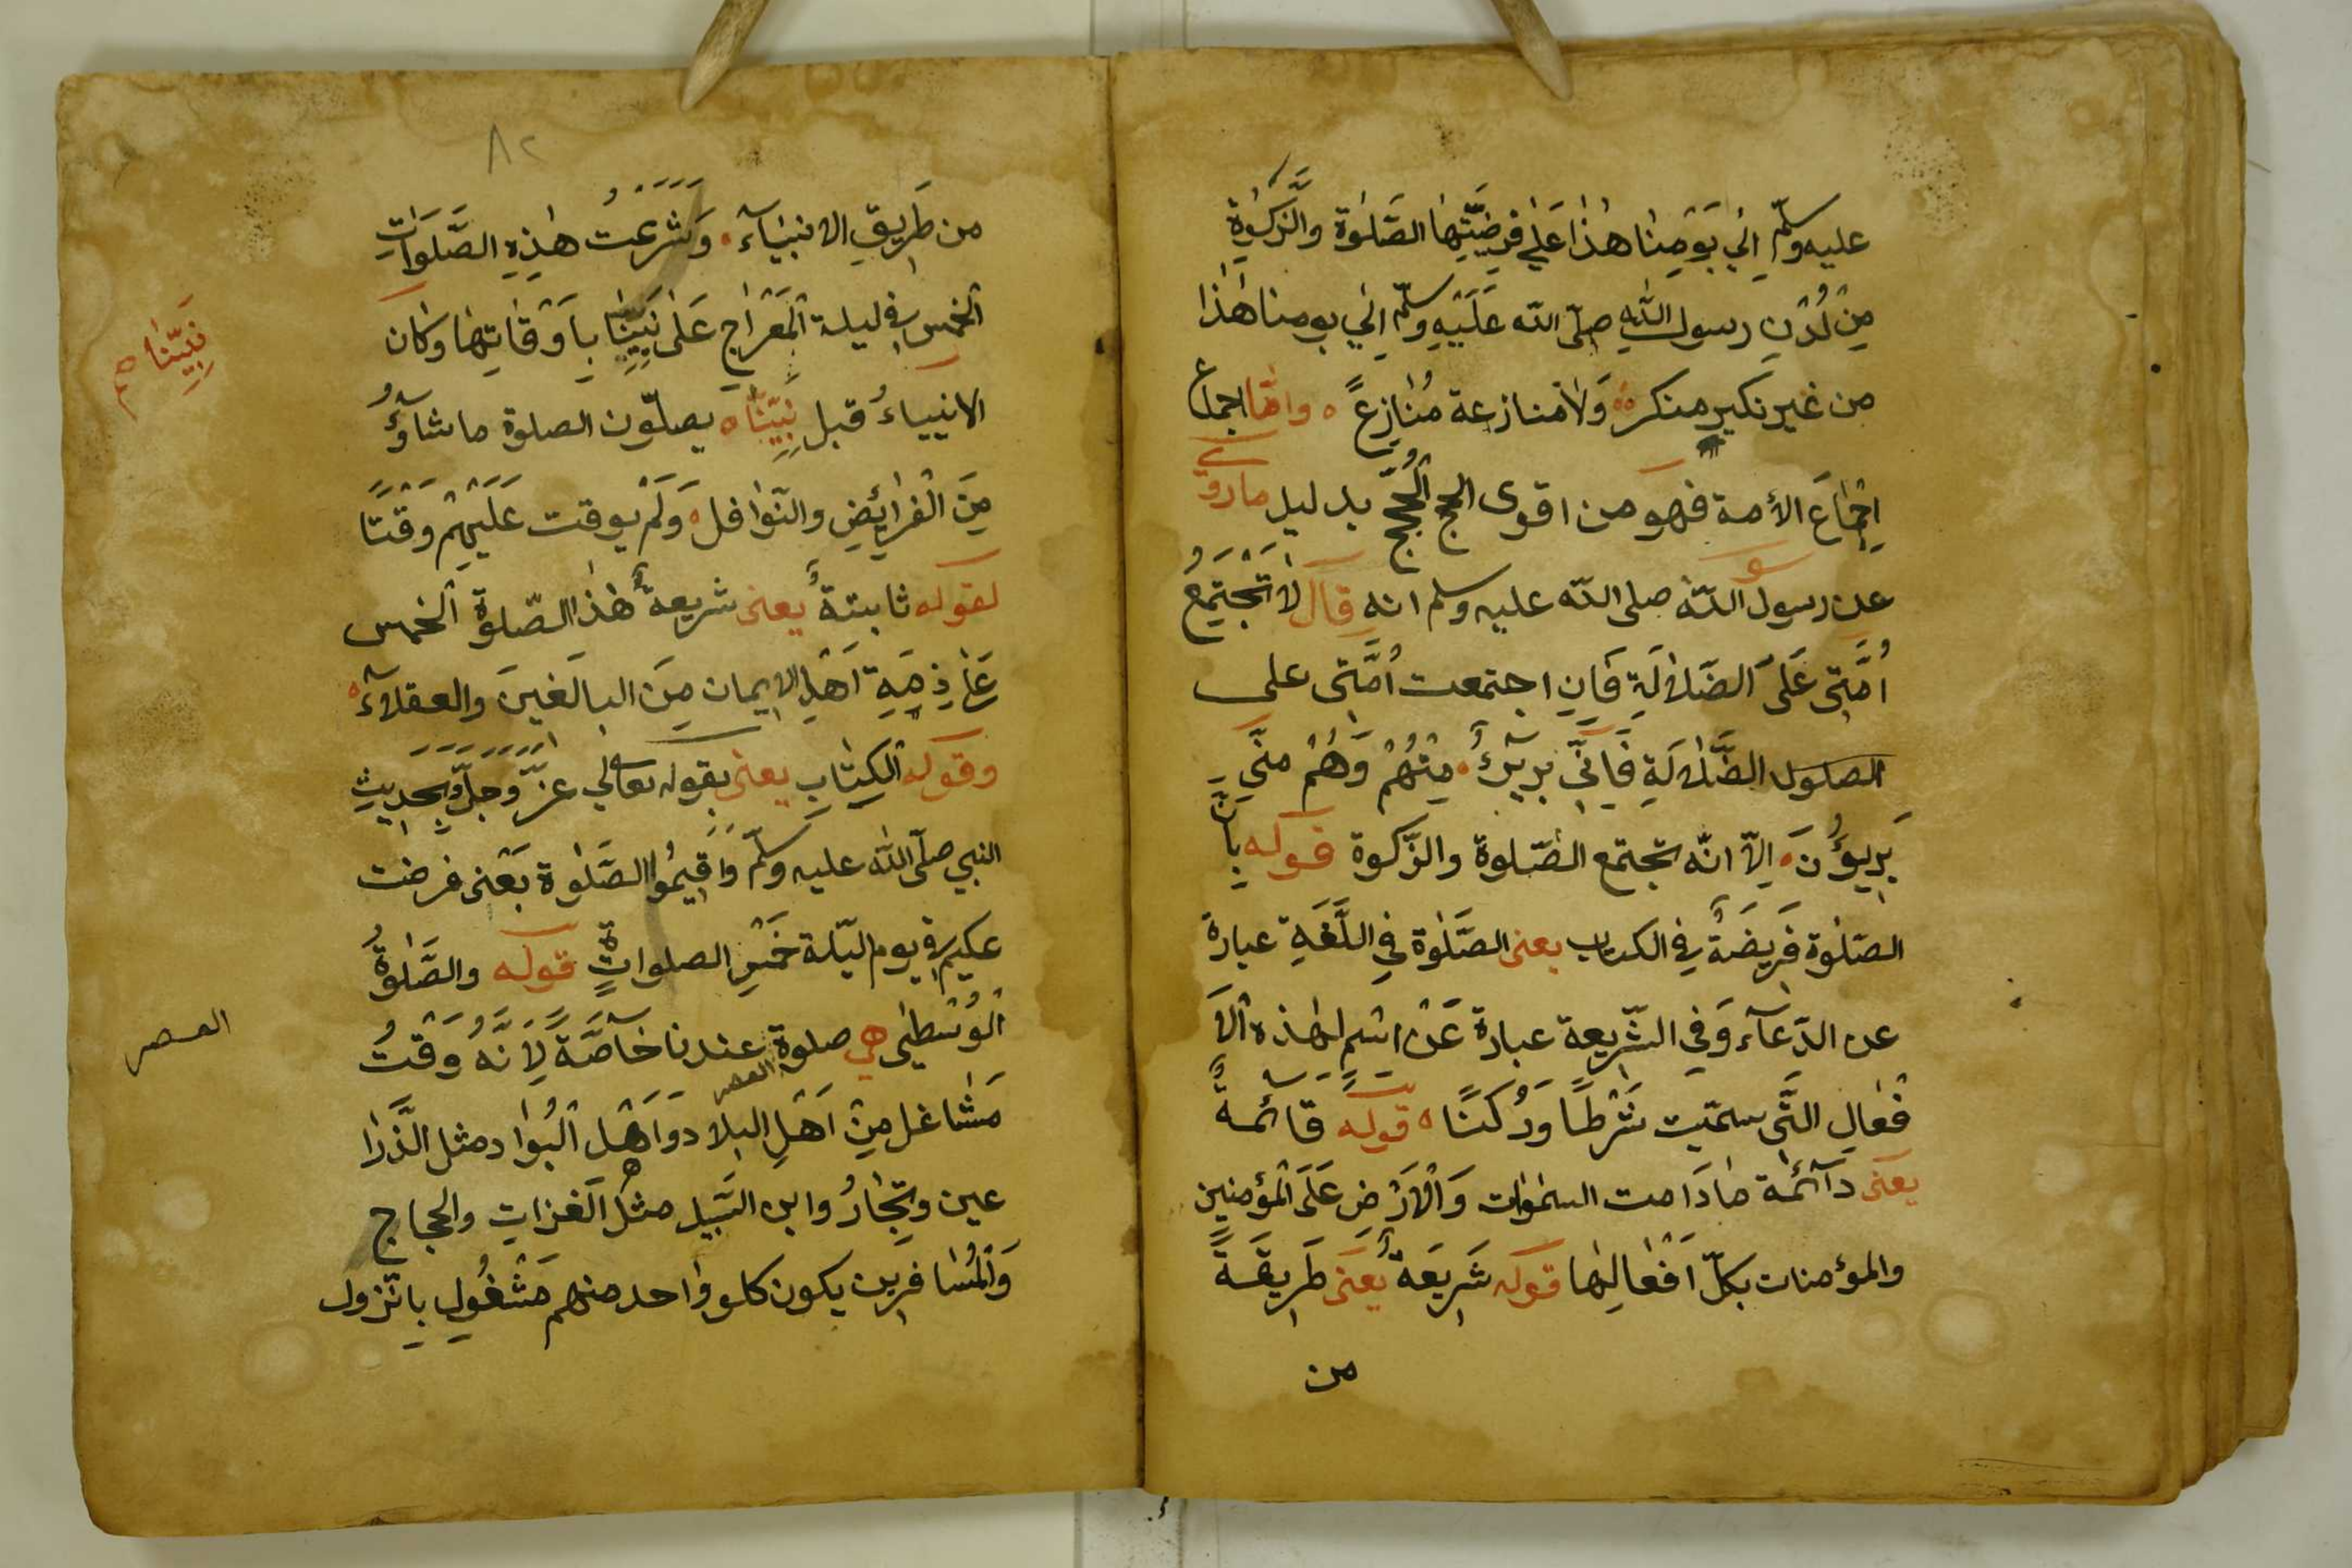 عليه وسلّم اِلي يَوْمِنا هٰذا عَلي فرِضيّتِها الصّلٰوة والزّكوٰةِ
مِنْ لُدْنِ رسول اللّٰهِ صلّى اللّه عَلَيْهِ وسلّم اِلي يومنا هٰذا
من غير نكير منكر وَلا منازعة مُنٰازِعً وامّا اجماع
اِجْمٰاعَ الأمة فهو من اقوى الحجج الْحُجَجِ بدليل ما روى
عن رسول اللّٰه صلى اللّه عليه وسلم انه قال لا تَجْتَمِعُ
اُمَّتِى عَلَى الضَلالَةِ فَاِنِ اجتمعت اُمَّتِى على
الصلول الضَّلٰالَةِ فَاِنّي بَرِيْئٌ مِنْهُمْ وَهُمْ مِنّي
بَرِيؤُنَ اِلاّ انّه تجتمع الصّلوة والزّكوة قوله بِاَنَّ
الصّلٰوة فَرِيضَةٌ في الكتاب يعنى الصَّلٰوة فِي اللُّغَةِ عبارة
عن الدّعآء وَفي الشّريعة عبارة عَنْ اسْمٍ لهٰذه الْاَ
فْعٰالِ الَّتى سمّيت شَرْطًا وَرُكنًا قوله قائمةٌ
يعَنى دَآئمة مٰا دَامت السّمٰوات وَالْاَرْضِ عَلَى الْمؤمنين
والمؤمنات بكلّ اَفْعالِهٰا قوله شَرِيعَةٌ يعَنى طَرِيقَةً
من
٨٢
من طَرِيقِ الانبيَآء وَشَرَعَتْ هٰذِهِ الصَّلَوَاتِ
الْخمس في ليلة الْمِعْرٰاجِ عَلىٰ نَبِيِّنٰا بِاَوْقٰاتِهٰا وكان
الانبياءُ قبل نَبِيِّنٰا يصلّون الصلوة ما شاؤُ
مِنَ الْفَرٰائِضِ والنّوٰافل وَلَمْ يوقت عَلَيْهِمْ وَقْتًا
لقوله ثابتةٌ يعنى شريعةٌ هٰذا الصّلوةُ الْخمس
عَلي ذِمَّةِ اَهْلِ الايمان مِنَ البالغينَ والعقلآءِ
وقوله الْكِتٰابِ يعنى بقوله تعالي عَزّ وَجَلّ وَبِحَدِيثِ
النبي صلّى اللّٰه عليه وسلّم وَاَقِيمُوا الصَّلٰوة بَعَنى فرضت
عليكم في يوم اللّيلة خَمْسِ الصلواتٍ قوله والصَّلٰوةُ
الْوُسْطٰى هي صلوة العصر عندنا خاصَّةً لِاَنَّهُ وَقْتُ
مَشٰاغل مِنْ اَهْلِ البلاد وَاَهْل الْبُوٰاد مثل الذَّرا
عين وتِجّٰارُ وابن السَّبِيلِ مثل الغزاتِ والحجاج
وَالْمُسٰافِرِين يكون كلو وٰاحد منهم مَشْغُولِ بِالنّزول
نَبِيّنٰا
العصر